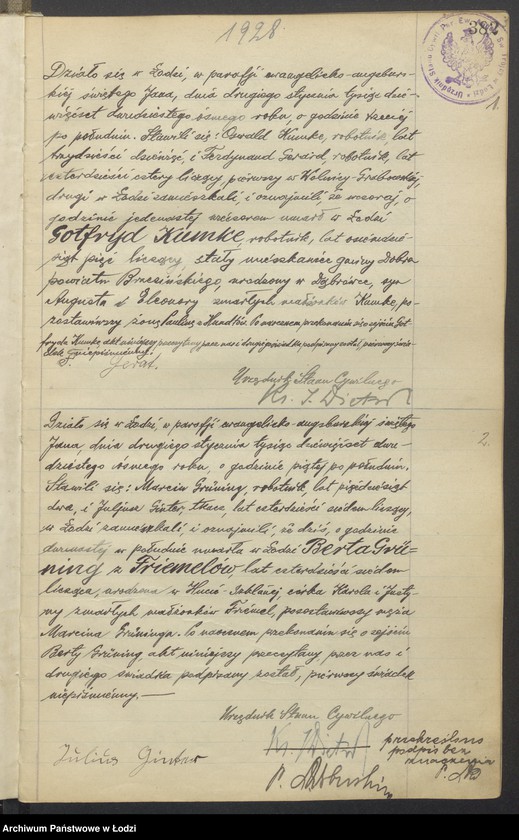 1928.
382
1.
Działo się w Łodzi, w parafji ewangelicko-augsbur-
skiej świętego Jana, dnia drugiego stycznia tysiąc dzie-
więćset dwudziestego ósmego roku, o godzinie trzeciej
po południu. Stawili się: Oswald Kumke, robotnik, lat
trzydzieści dziewięć, i Ferdynand Gerard, robotnik, lat
czterdzieści cztery liczący, pierwszy w Wólnicy-Grabowskiej,
drugi w Łodzi zamieszkali, i oznajmili, że wczoraj, o
godzinie jedenastej wieczorem umarł w Łodzi
Gotfryd Kumke, robotnik, lat osiemdzie-
siąt pięć liczący, stały mieszkaniec gminy Dobra
powiatu Brzezińskiego, urodzony w Dąbrówce, syn
Augusta i Eleonory zmarłych małżonków Kumke, po-
zostawiwszy żonę Paulinę z Handtów. Po naocznem przekonaniu się o zejściu Got-
fryda Kumke akt niniejszy przeczytany przez nas i drugiego świadka podpisany został, pierwszy świa-
dek niepiśmienny.
Urzędnik Stanu Cywilnego
Ks. J. Dietrich
2.
Działo się w Łodzi, w parafji ewangelicko-augsburskiej świętego
Jana, dnia drugiego stycznia tysiąc dziewięćset dwu-
dziestego ósmego roku, o godzinie piątej po południu.
Stawili się: Marcin Grüning, robotnik, lat pięćdziesiąt
dwa, i Juljusz Ginter, tkacz, lat czterdzieści siedem liczący,
w Łodzi zamieszkali i oznajmili, że dziś, o godzinie
dwunastej w południe umarła w Łodzi Berta Grü-
ning z Friemelów, lat czterdzieści siedem
licząca, urodzona w Hucie-Jabłonej córka Karola i Justy-
ny zmarłych małżonków Friemel, pozostawiwszy męża
Marcina Grüninga. Po naocznem przekonaniu się o zejściu
Berty Grüning, akt niniejszy przeczytany przez nas i
drugiego świadka podpisany został, pierwszy świadek
niepiśmienny.—
Urzędnik Stanu Cywilnego
Ks. J. Dietrich
Julius Ginter
przekreślono
podpis bez
znaczenia
Archiwum Państwowe w Łodzi